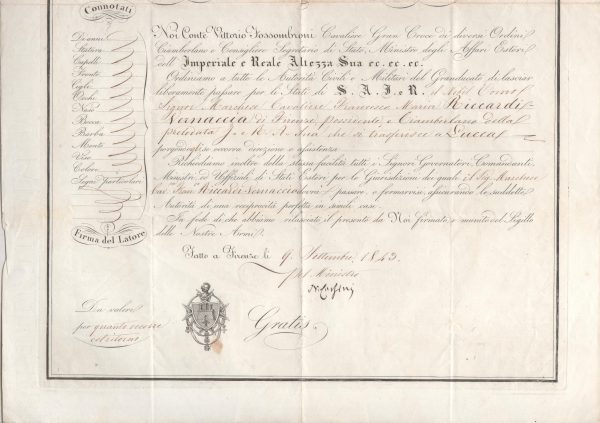 Connotati
D'anni
Statura
Capelli
Fronte
Ciglia
Occhi
Naso
Bocca
Barba
Mento
Viso
Colore
Segni particolari
Firma del Latore
Noi Conte Vittorio Fossombroni Cavaliere Gran Croce di diversi Ordini
Ciamberlano e Consigliere Segretario di Stato, Ministro degli Affari Esteri
dell' Imperiale e Reale Altezza Sua ec. ec. ec.
Ordiniamo a tutte le Autorità Civili e Militari del Granducato di lasciar
liberamente passare per li Stati di S. A. I. e R. il Nobil Uomo
Signor Marchese Cavaliere Francesco Maria Riccardi
Vernaccia di Firenze, possidente e Ciamberlano della
prelodata I. e R. A. Sua che si trasferisce a Lucca
porgendogli se occorra direzione ed assistenza.
Richiediamo inoltre della stessa facilità tutti i Signori Governatori, Comandanti,
Ministri ed Uffiziali di Stati Esteri per le Giurisdizioni dei quali il Sig. Marchese
Riccardi Vernaccia dovrà passare, o fermarsi, assicurando le suddette
Autorità di una reciprocità perfetta in simile caso.
In fede di che abbiamo rilasciato il presente da Noi firmato e munito del Sigillo
delle Nostre Armi.
Fatto a Firenze li 9. Settembre 1843.
Ministro
Gratis.
Da valere
per quante